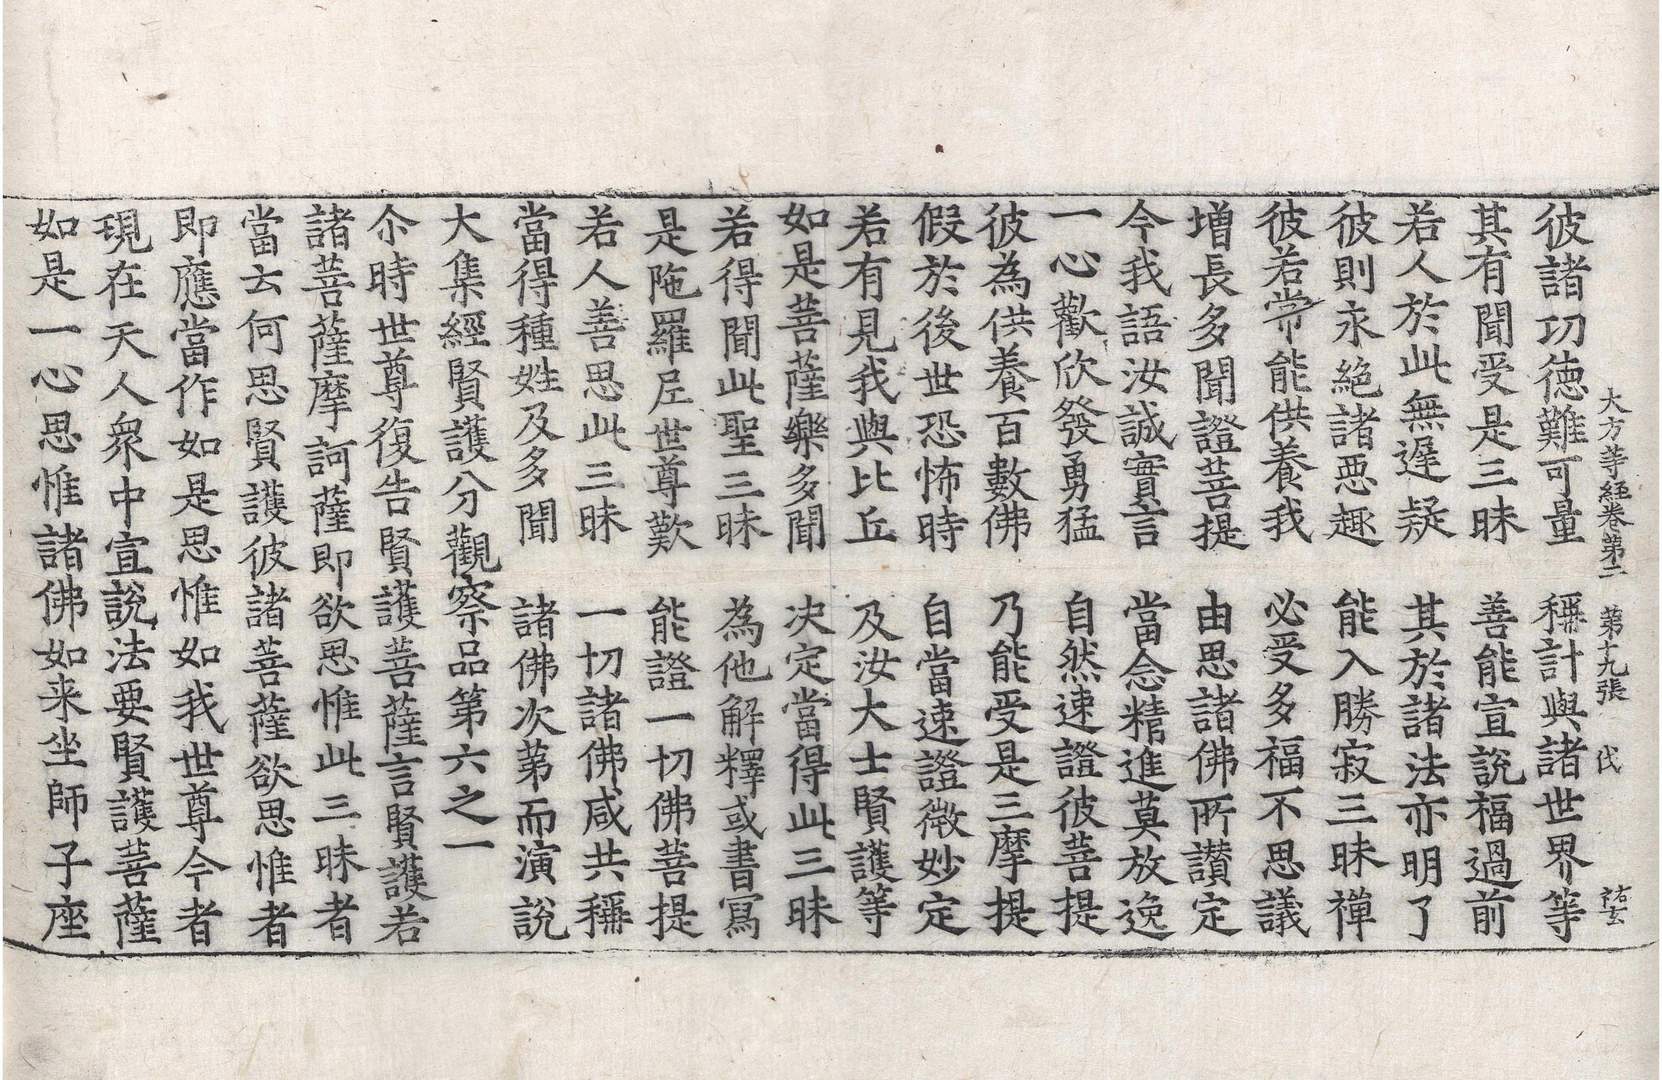 大方等經卷第二　第十九張　伐　祐玄
彼諸功德難可量　稱計與諸世界等
其有聞受是三昧　善能宣說福過前
若人於此無遲疑　其於諸法亦明了
彼則永絕諸惡趣　能入勝寂三昧禪
彼若常能供養我　必受多福不思議
增長多聞證菩提　由思諸佛所讚定
今我語汝誠實言　當念精進莫放逸
一心歡欣發勇猛　自然速證彼菩提
彼為供養百數佛　乃能受是三摩提
假於後世恐怖時　自當速證微妙定
若有見我與比丘　及汝大士賢護等
如是菩薩樂多聞　決定當得此三昧
若得聞此聖三昧　為他解釋或書寫
是陁羅尼世尊歎　能證一切佛菩提
若人善思此三昧　一切諸佛咸共稱
當得種姓及多聞　諸佛次第而演說
大集經賢護分觀察品第六之一
尒時世尊復告賢護菩薩言賢護若
諸菩薩摩訶薩即欲思惟此三昧者
當云何思賢護彼諸菩薩欲思惟者
即應當作如是思惟如我世尊今者
現在天人衆中宣說法要賢護菩薩
如是一心思惟諸佛如来坐師子座